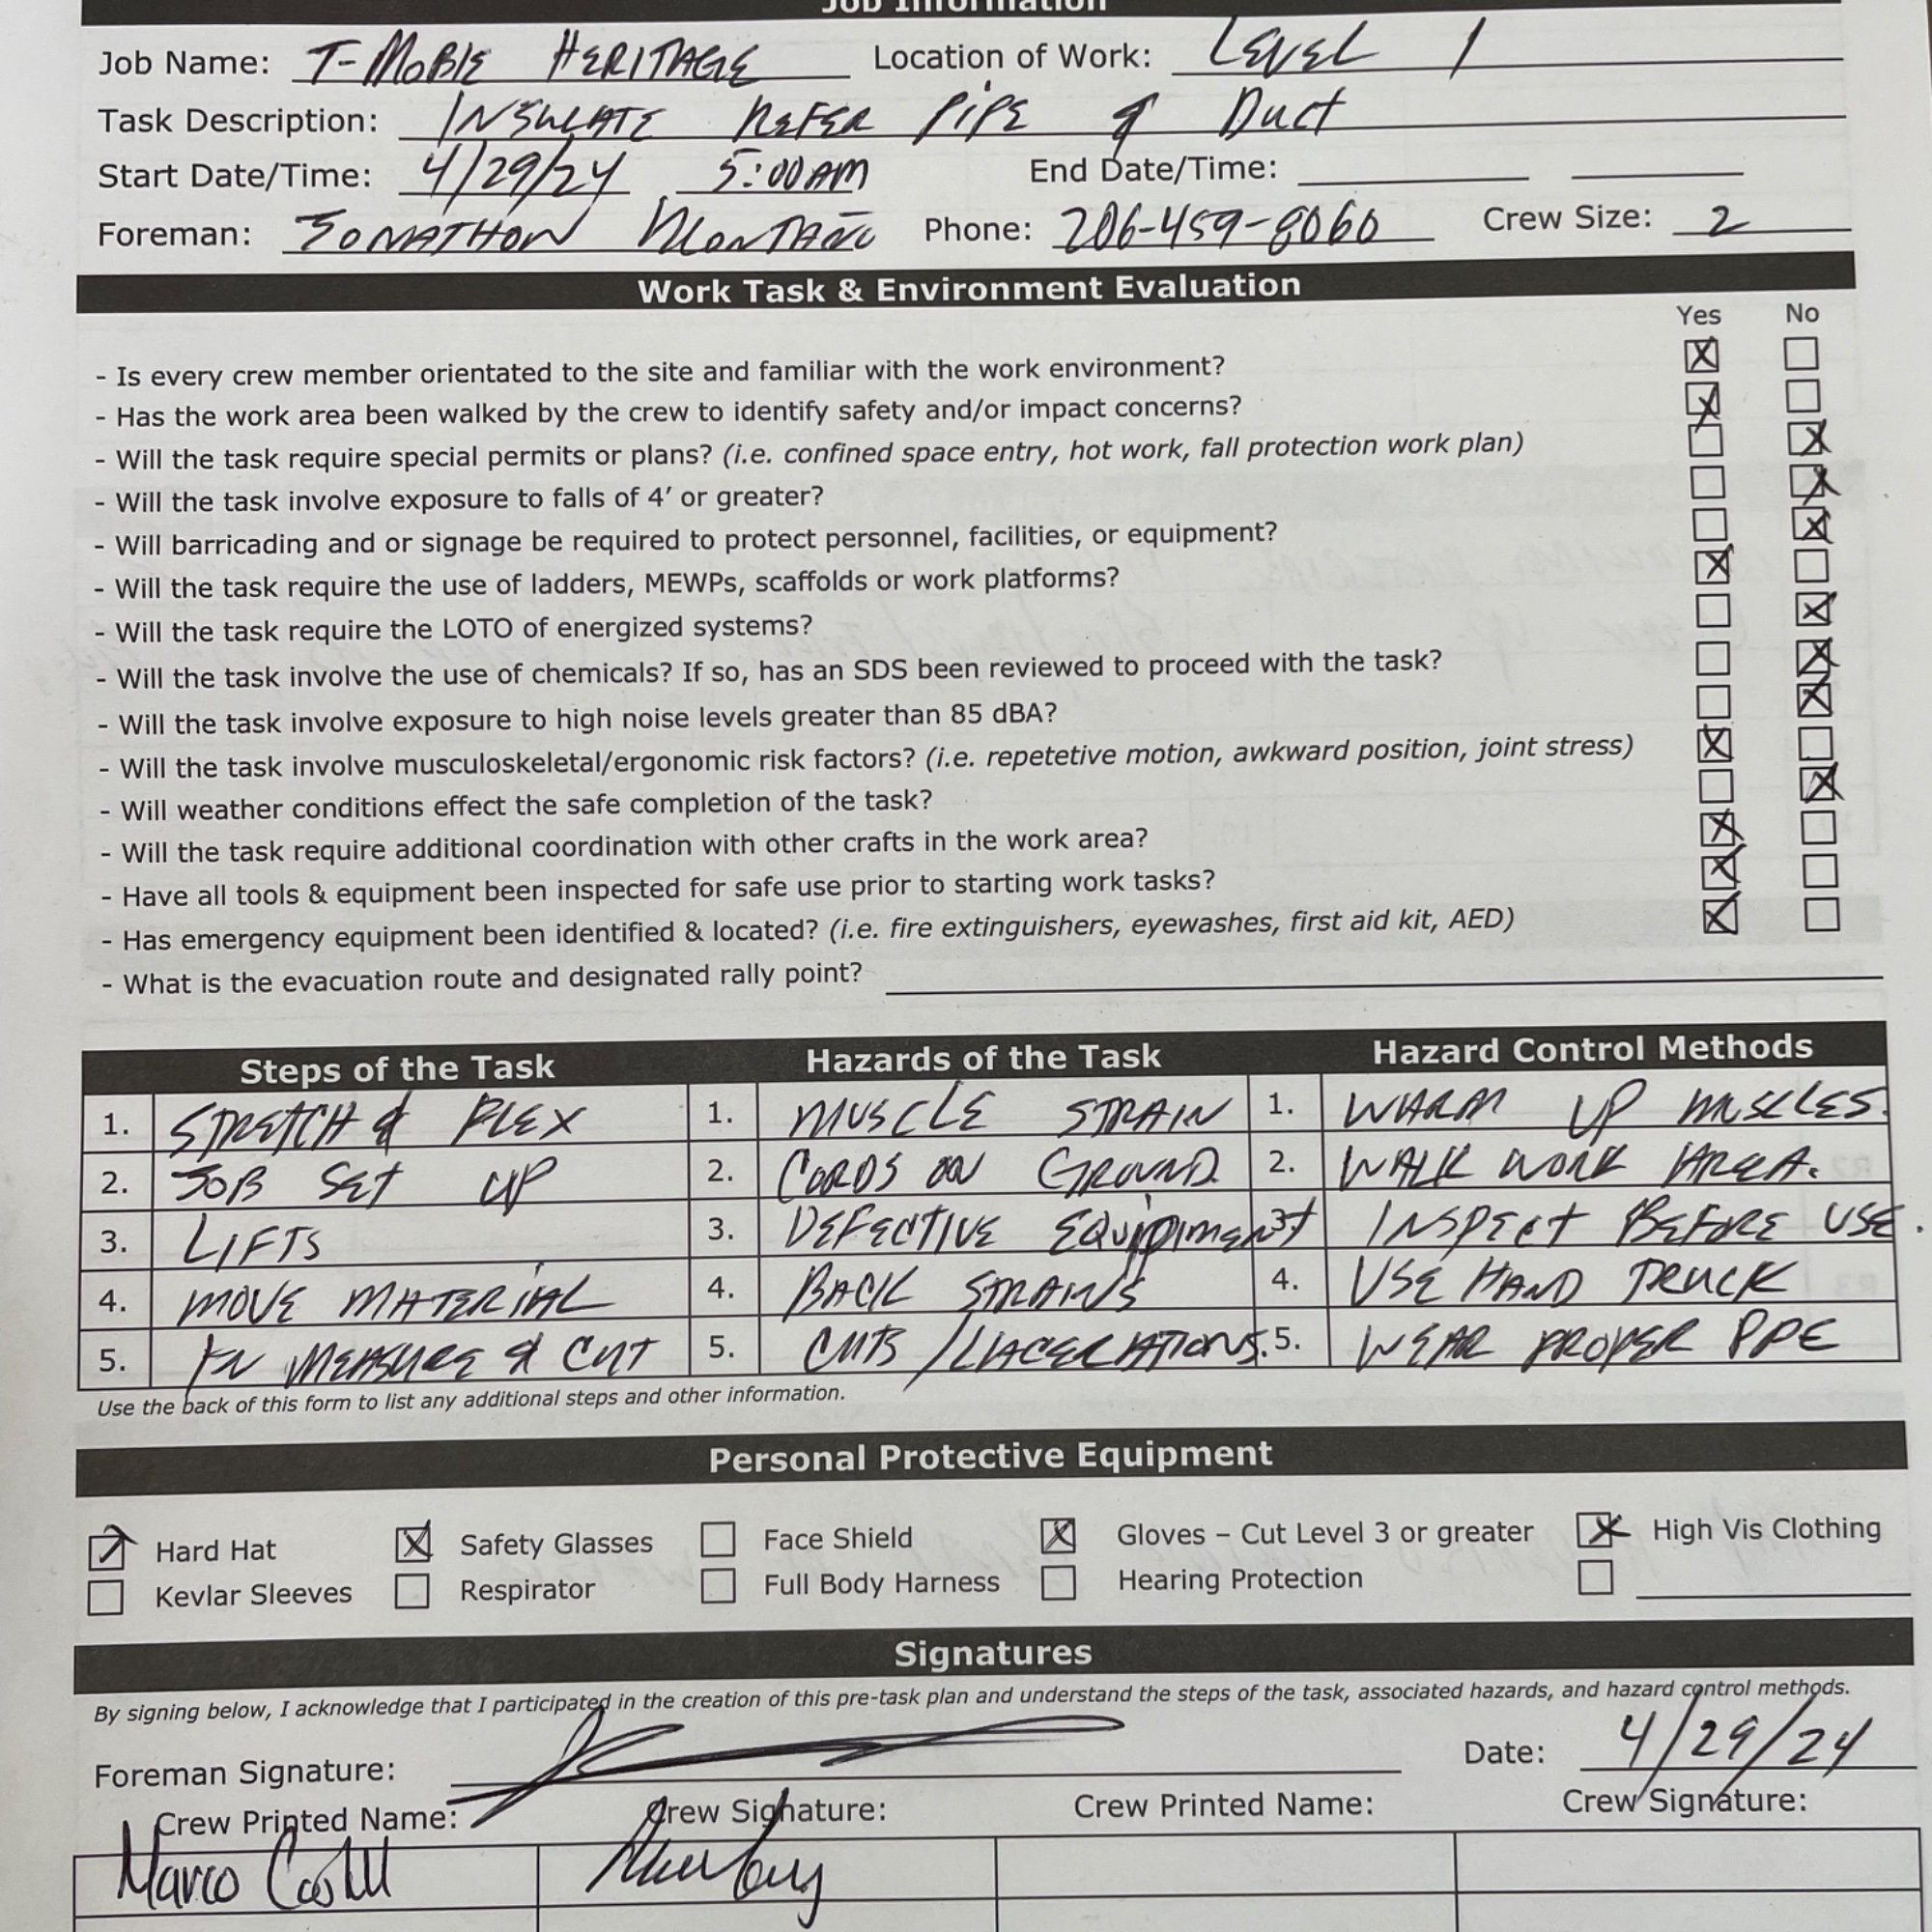 Job Information
Job Name: T-MOBIE HERITAGE Location of Work: LEVEL 1
Task Description: INSULATE REFER PIPE & Duct
Start Date/Time: 4/29/24 5:00AM End Date/Time:
Foreman: JONATHON MONTAÑO Phone: 206-459-8060 Crew Size: 2
Work Task & Environment Evaluation
Yes No
- Is every crew member orientated to the site and familiar with the work environment?
- Has the work area been walked by the crew to identify safety and/or impact concerns?
- Will the task require special permits or plans? (i.e. confined space entry, hot work, fall protection work plan)
- Will the task involve exposure to falls of 4' or greater?
- Will barricading and or signage be required to protect personnel, facilities, or equipment?
- Will the task require the use of ladders, MEWPs, scaffolds or work platforms?
- Will the task require the LOTO of energized systems?
- Will the task involve the use of chemicals? If so, has an SDS been reviewed to proceed with the task?
- Will the task involve exposure to high noise levels greater than 85 dBA?
- Will the task involve musculoskeletal/ergonomic risk factors? (i.e. repetetive motion, awkward position, joint stress)
- Will weather conditions effect the safe completion of the task?
- Will the task require additional coordination with other crafts in the work area?
- Have all tools & equipment been inspected for safe use prior to starting work tasks?
- Has emergency equipment been identified & located? (i.e. fire extinguishers, eyewashes, first aid kit, AED)
- What is the evacuation route and designated rally point?
Steps of the Task Hazards of the Task Hazard Control Methods
1. STRETCH & FLEX 1. MUSCLE STRAIN 1. WARM UP MUSCLES.
2. JOB SET UP 2. CORDS ON GROUND. 2. WALK WORK AREA.
3. LIFTS 3. DEFECTIVE EQUIPMENT 3. INSPECT BEFORE USE.
4. MOVE MATERIAL 4. BACK STRAINS 4. USE HAND TRUCK
5. MEASURE & CUT 5. CUTS / LACERATIONS. 5. WEAR PROPER PPE
Use the back of this form to list any additional steps and other information.
Personal Protective Equipment
Hard Hat Safety Glasses Face Shield Gloves – Cut Level 3 or greater High Vis Clothing
Kevlar Sleeves Respirator Full Body Harness Hearing Protection
Signatures
By signing below, I acknowledge that I participated in the creation of this pre-task plan and understand the steps of the task, associated hazards, and hazard control methods.
Foreman Signature: Date: 4/29/24
Crew Printed Name: Crew Signature: Crew Printed Name: Crew Signature:
Marco